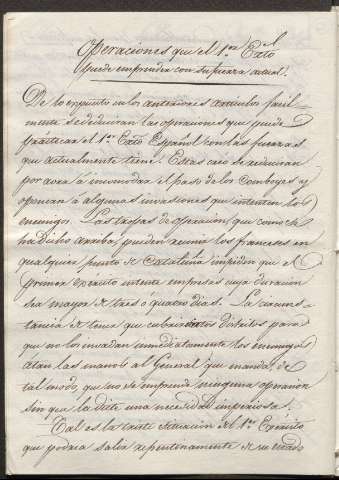 Operaciones que el 1.er Exto
puede emprender con su fuerza actual.
De lo expuesto en los anteriores articulos facil-
mente se deduciran las operaciones que puede
practicar el 1.er Exto Español con las fuerzas
que actualmente tiene. Estas casi se reduciran
por aora á incomodar el paso de los Comboyes y
oponerse á algunas invasiones que intenten los
enemigos. Las tropas de operacion, que como se
ha dicho arriba, pueden reunir los franceses en
qualquier punto de Cataluña impiden que el
primer Exercito intente empresas cuya duracion
sea mayor de tres o quatro dias. La circuns-
tancia de tener que cubrir distritos para
que no los invadan inmediatamente los enemigos
atan las manos al General que manda, de
tal modo, que no se emprende ninguna operacion
sin que la dicte una necesidad imperiosa.
Tal es la triste situacion del 1.er Exercito
que podria salir repentinamente de su estado